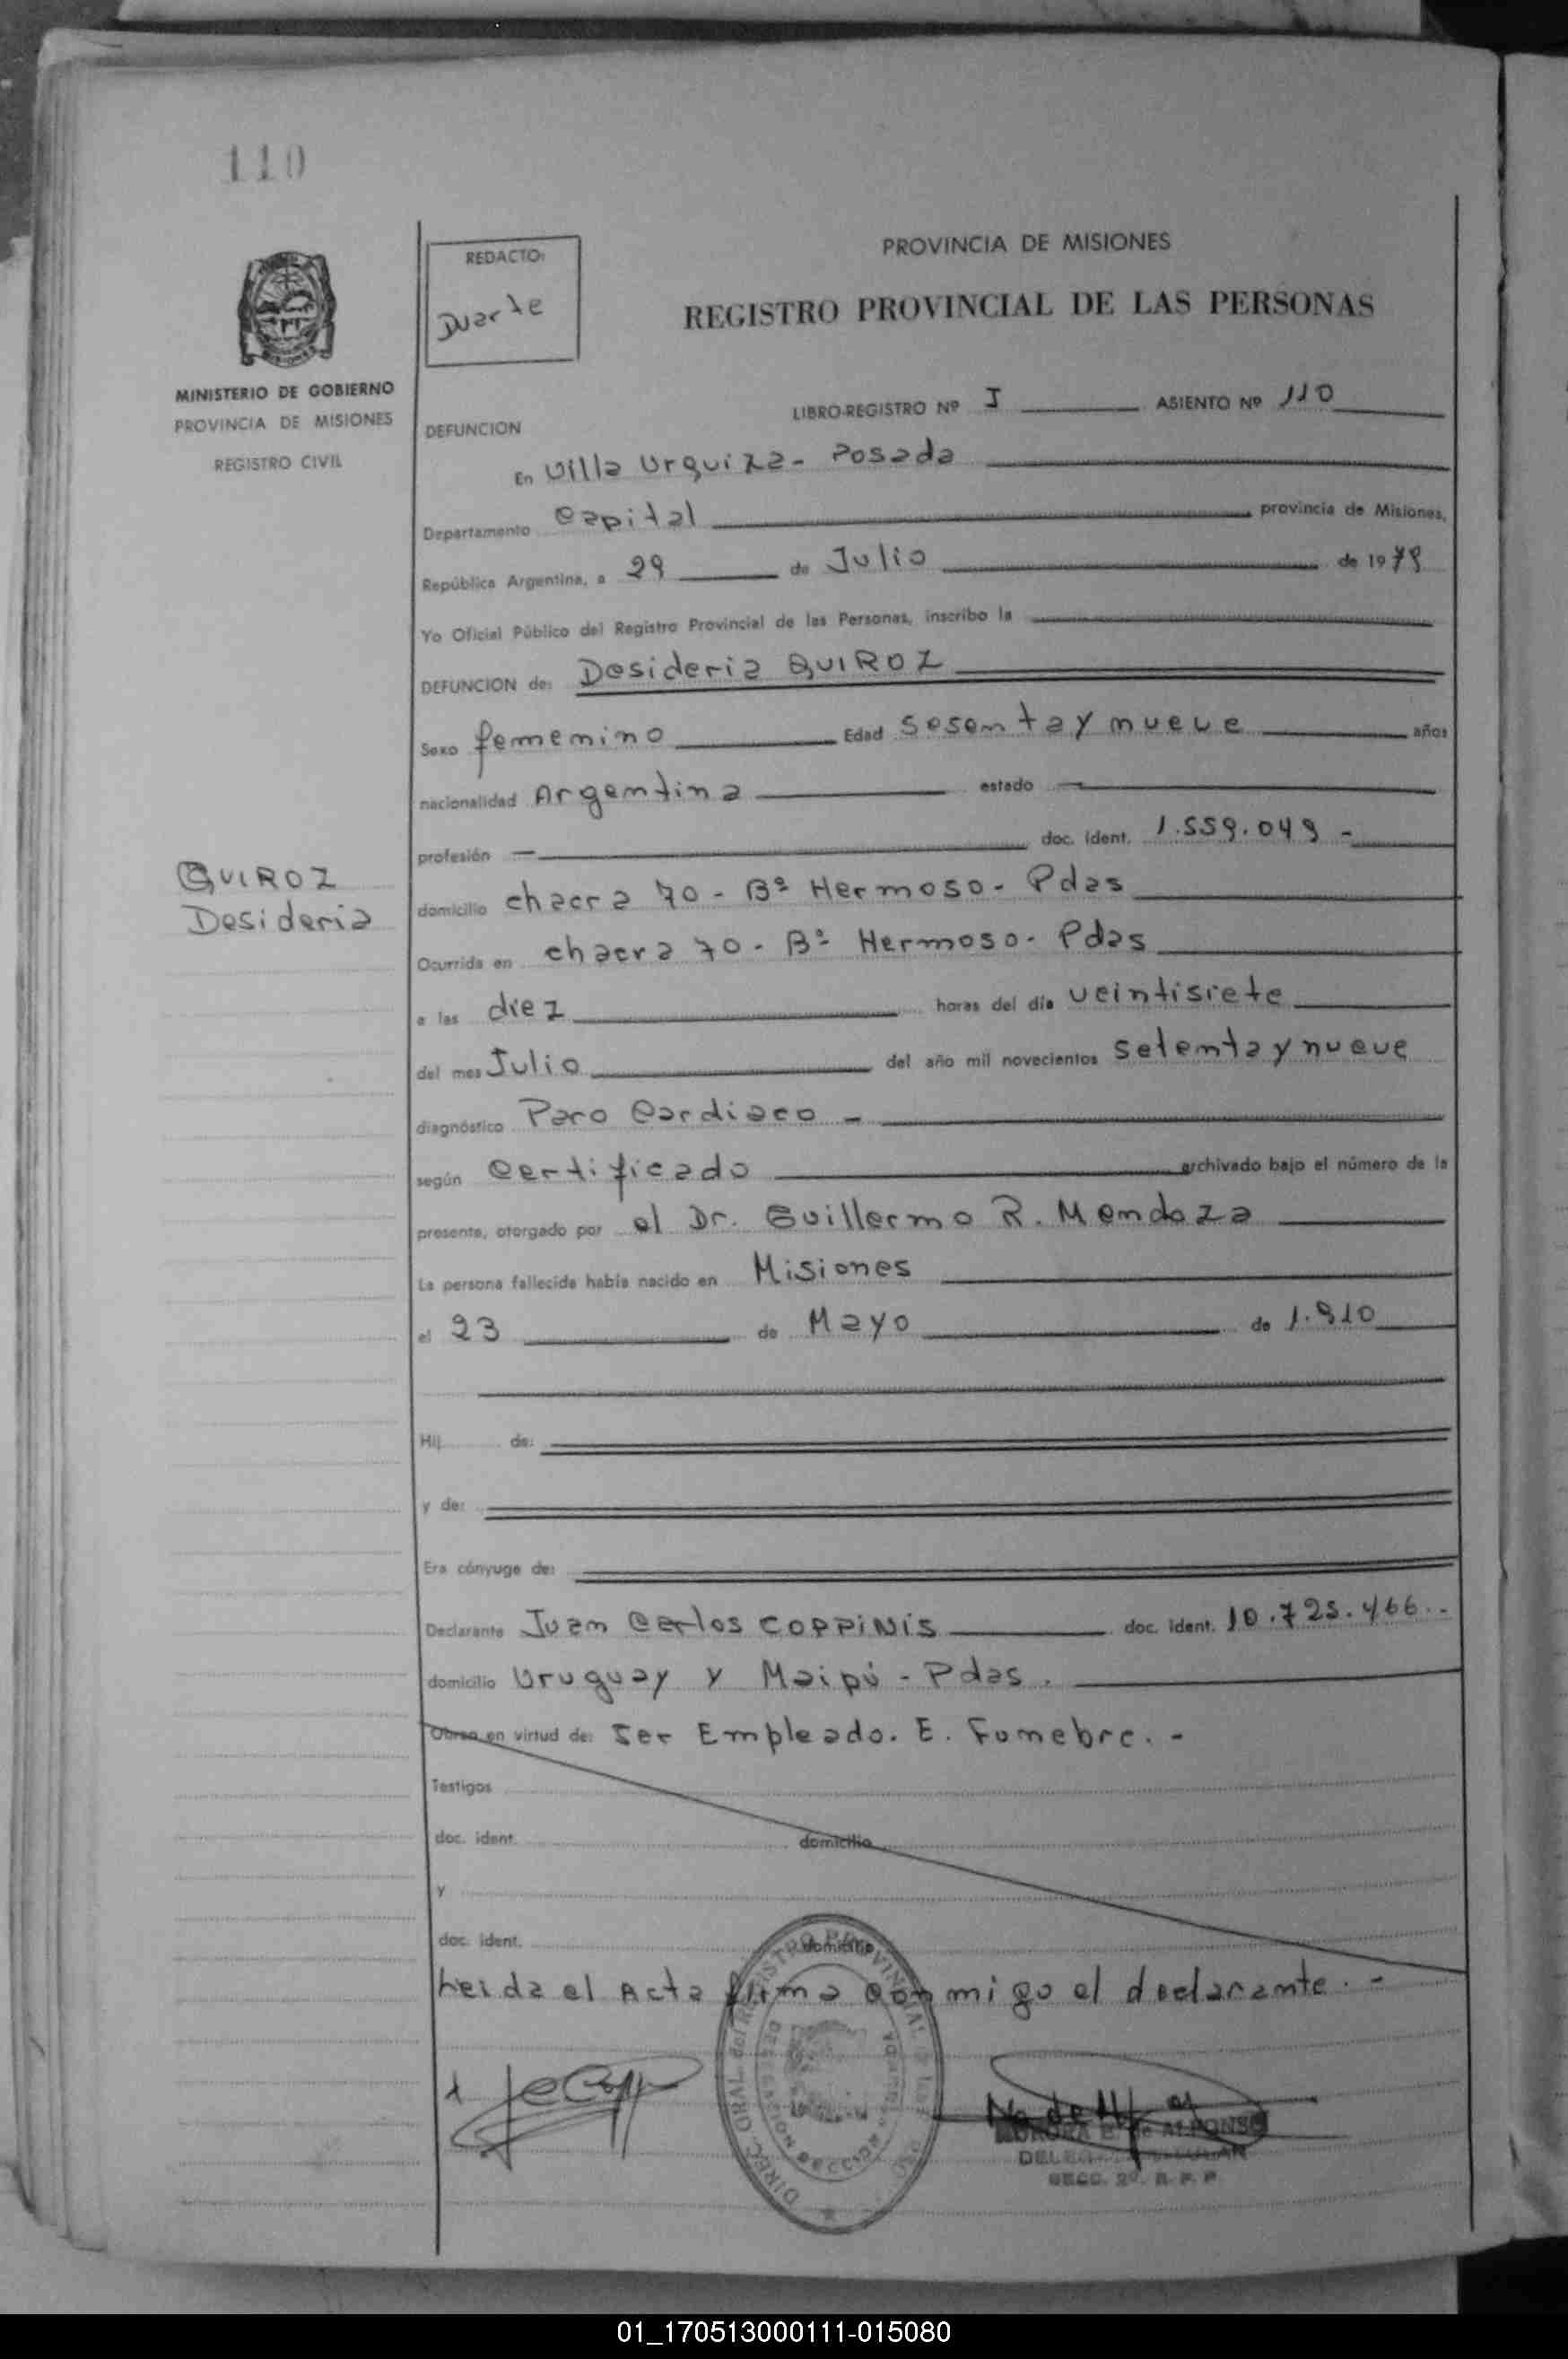 110
MINISTERIO DE GOBIERNO
PROVINCIA DE MISIONES
REGISTRO CIVIL
REDACTO:
Duarte
PROVINCIA DE MISIONES
REGISTRO PROVINCIAL DE LAS PERSONAS
LIBRO-REGISTRO Nº I ASIENTO Nº 110
DEFUNCION
En Villa Urquiza - Posada
Departamento Capital provincia de Misiones,
República Argentina, a 29 de Julio de 1979
Yo Oficial Público del Registro Provincial de las Personas, inscribo la
DEFUNCION de: Desideria QUIROZ
Sexo femenino Edad Sesenta y nueve años
nacionalidad Argentina estado —
profesión — doc. ident. 1.559.049 -
QUIROZ
Desideria
domicilio chacra 70 - Bº Hermoso - Pdas
Ocurrida en chacra 70 - Bº Hermoso - Pdas
a las diez horas del día veintisiete
del mes Julio del año mil novecientos setenta y nueve
diagnóstico Paro Cardiaco -
según Certificado archivado bajo el número de la
presente, otorgado por el Dr. Guillermo R. Mendoza
La persona fallecida había nacido en Misiones
el 23 de Mayo de 1.910
Hij de:
y de:
Era cónyuge de:
Declarante Juan Carlos COPPINIS doc. ident. 10.725.466.-
domicilio Uruguay y Maipú - Pdas.
Obran en virtud de: Ser Empleado. E. Funebre. -
Testigos
doc. ident. domicilio
y
doc. ident. domicilio
Leida el Acta firma conmigo el declarante. -
DIREC. GRAL del REGISTRO PROVINCIAL de las
DELEGACION SECCION
ALFONSO
SECC. 2ª. R. P. P.
01_170513000111-015080